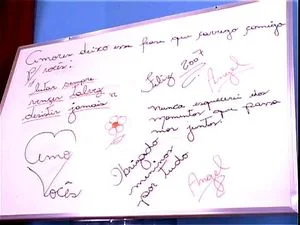 Amores deixo essa frase que carrego comigo
P/ vocês:
"lutar sempre
vencer talvez
desistir jamais"
Feliz 2007
Angel
nunca esquecerei dos
momentos que passa
mos juntos!
Amo
Vocês
Obrigado
meninos
por tudo
Angel